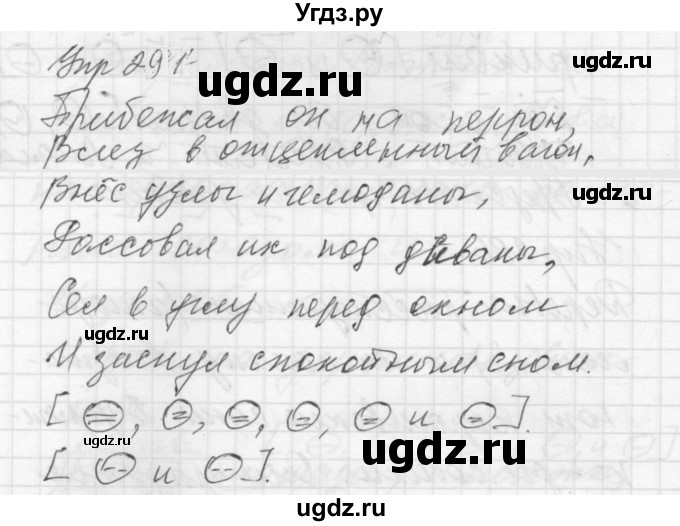 Угдз.ру
Упр 291.
Прибежал он на перрон,
Влез в отцепленный вагон,
Внёс узлы и чемоданы,
Рассовал их под диваны,
Сел в углу перед окном
И заснул спокойным сном.
[ (=), (=), (=), (=), (=) и (=) ].
[ (--) и (--) ].
ugdz.ru
ugdz.ru
ugdz.ru
ugdz.ru
ugdz.ru
ugdz.ru
ugdz.ru
ugdz.ru
ugdz.ru